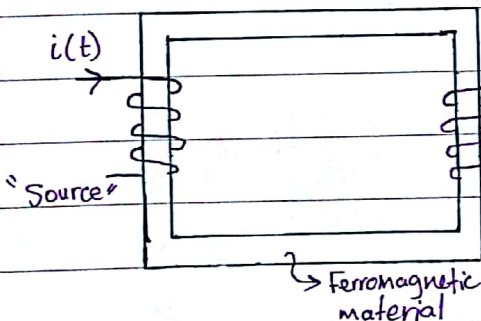 i(t)
"Source"
Ferromagnetic
material